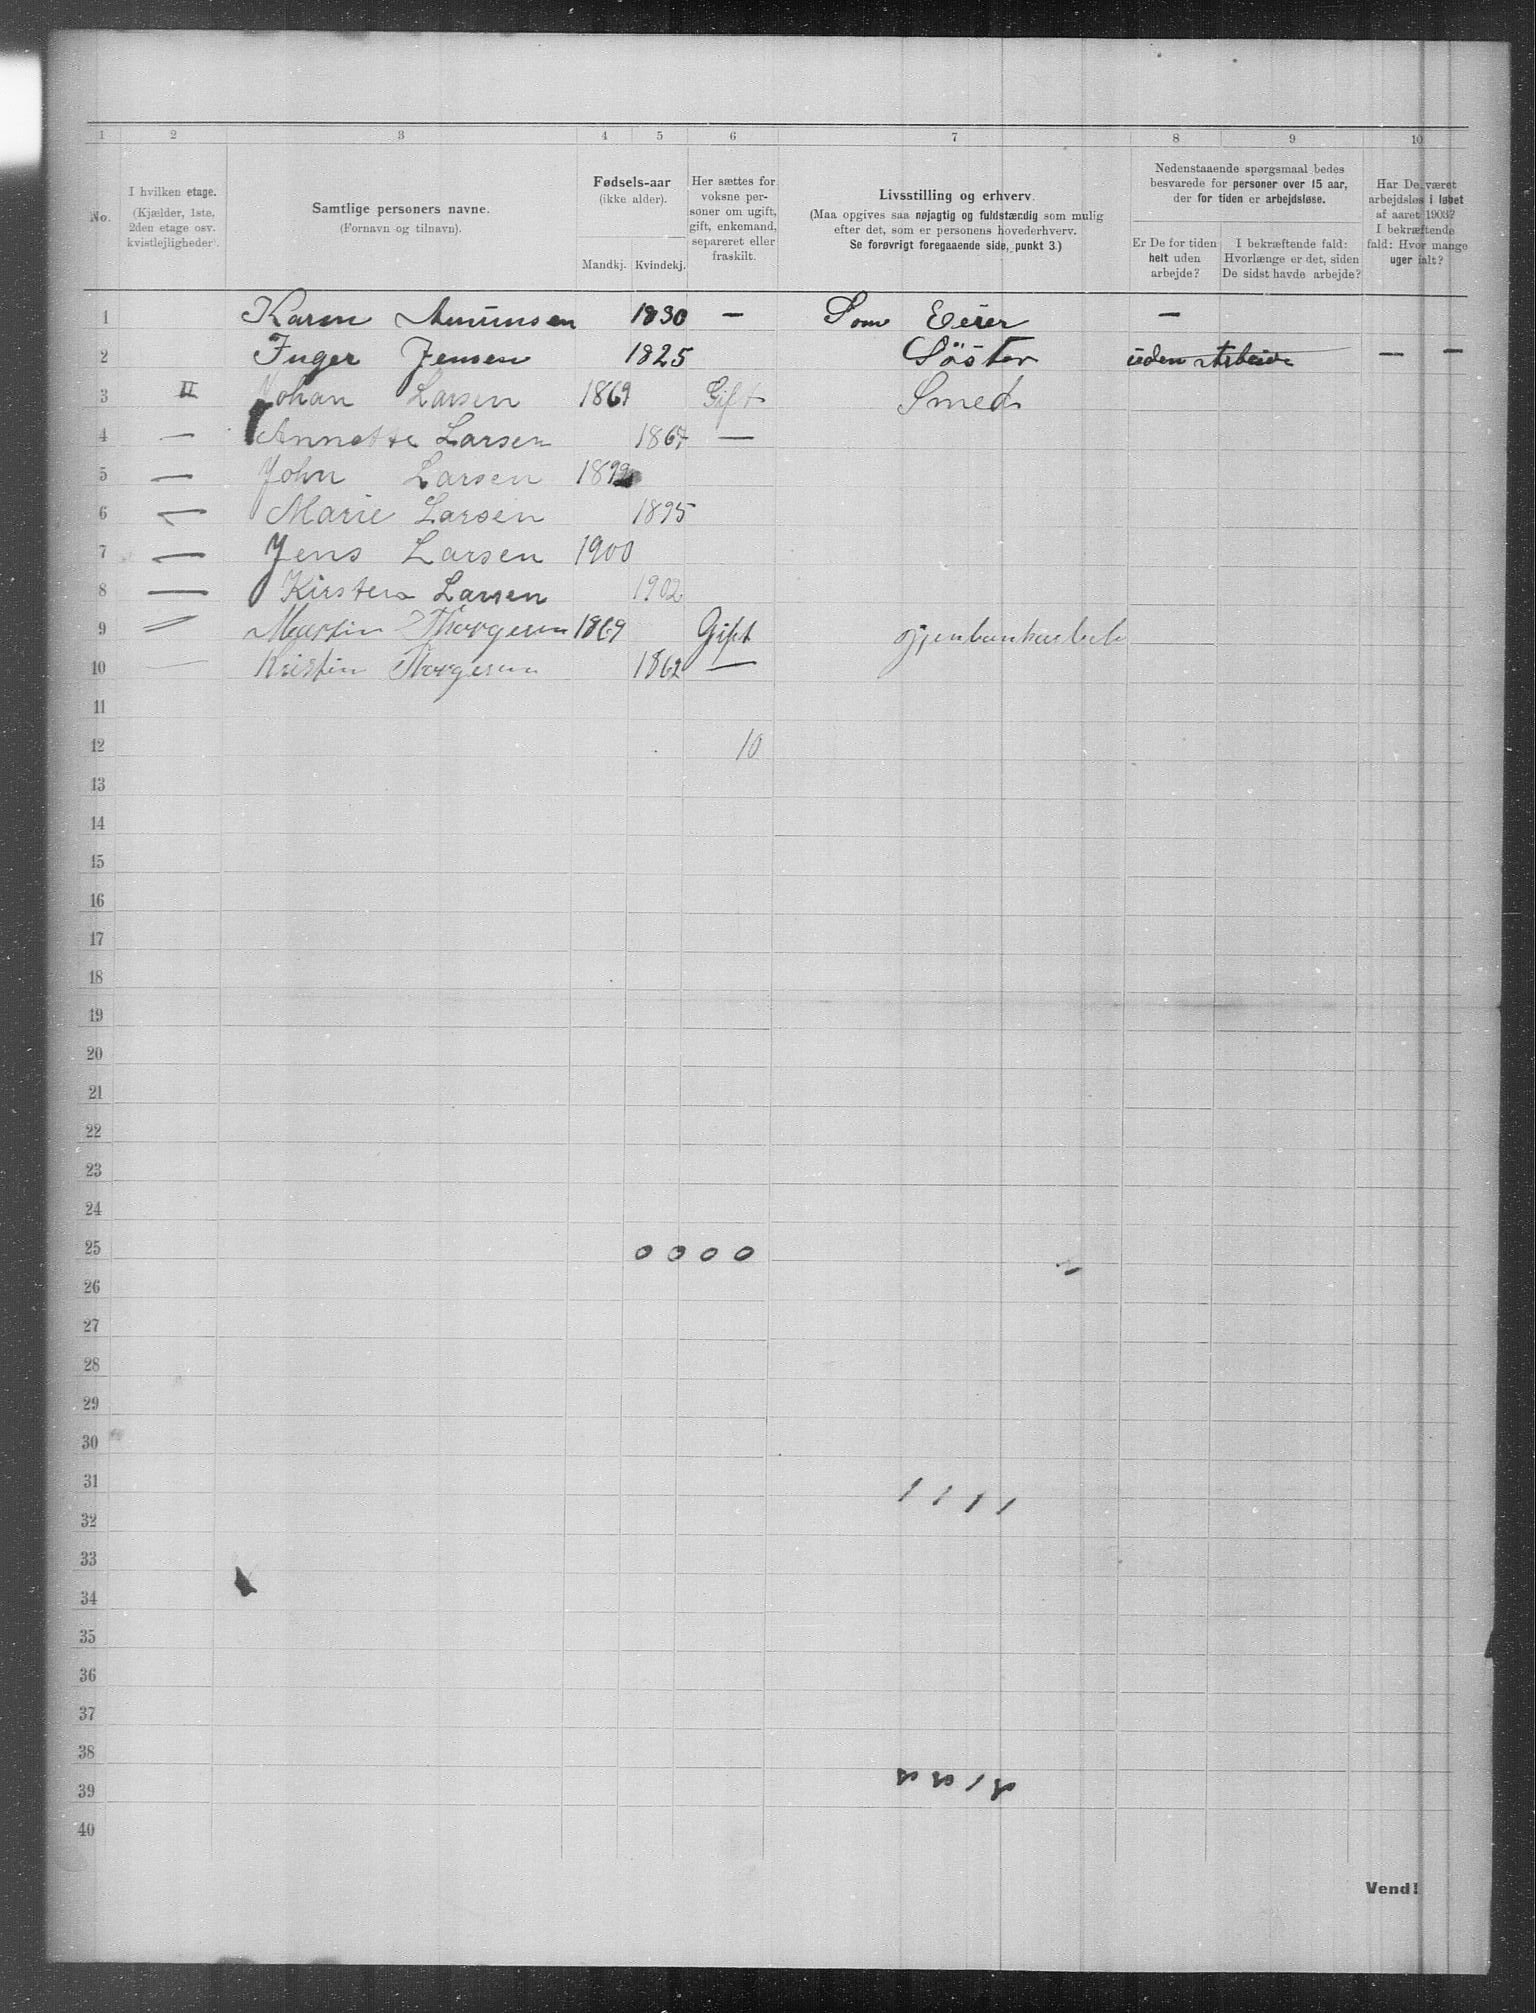 1 2 3 4 5 6 7 8 9 10
No.
I hvilken etage.
(Kjælder, 1ste,
2den etage osv.
kvistlejligheder).
Samtlige personers navne.
(Fornavn og tilnavn).
Fødsels-aar
(ikke alder).
Mandkj. Kvindekj.
Her sættes for
voksne per-
soner om ugift,
gift, enkemand,
separeret eller
fraskilt.
Livsstilling og erhverv.
(Maa opgives saa nøjagtig og fuldstændig som mulig
efter det, som er personens hovederhverv.
Se forøvrigt foregaaende side, punkt 3.)
Nedenstaaende spørgsmaal bedes
besvarede for personer over 15 aar,
der for tiden er arbejdsløse.
Er De for tiden
helt uden
arbejde?
I bekræftende fald:
Hvorlænge er det, siden
De sidst havde arbejde?
Har De været
arbejdsløs i løbet
af aaret 1903?
I bekræftende
fald: Hvor mange
uger ialt?
1 Karen 1830 — Som Eeier —
2 Inger Jensen 1825 Söster uden Arbeide — —
3 II Johan Larsen 1869 Gift Smed
4 — Annette Larsen 1867 —
5 — John Larsen 1892
6 — Marie Larsen 1895
7 — Jens Larsen 1900
8 — Kirsten Larsen 1902
9 〃 Martin Thorgersen 1869 Gift
10 — Kristin Thorgersen 1862 —
11
12 10
13
14
15
16
17
18
19
20
21
22
23
24
25 0 0 0 0
26
27
28
29
30
31 1 1 1 1
32
33
34
35
36
37
38
39
40
Vend!